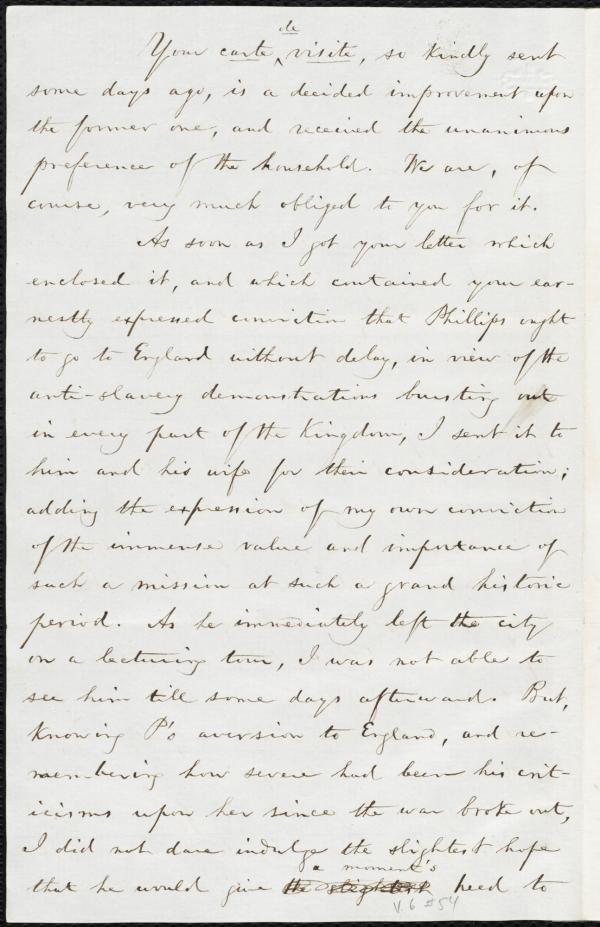 Your carte de visite, so kindly sent
some days ago, is a decided improvement upon
the former one, and received the unanimous
preference of the household. We are, of
course, very much obliged to you for it.
As soon as I got your letter which
enclosed it, and which contained your ear-
nestly expressed conviction that Phillips ought
to go to England without delay, in view of the
anti-slavery demonstrations bursting out
in every part of the Kingdom, I sent it to
him and his wife for their consideration;
adding the expression of my own conviction
of the immense value and importance of
such a mission at such a grand historic
period. As he immediately left the city
on a lecturing tour, I was not able to
see him till some days afterward. But,
knowing P's aversion to England, and re-
membering how severe had been his crit-
icisms upon her since the war broke out,
I did not dare indulge the slightest hope
that he would give the slightest a moment's heed to
V. 6 #54